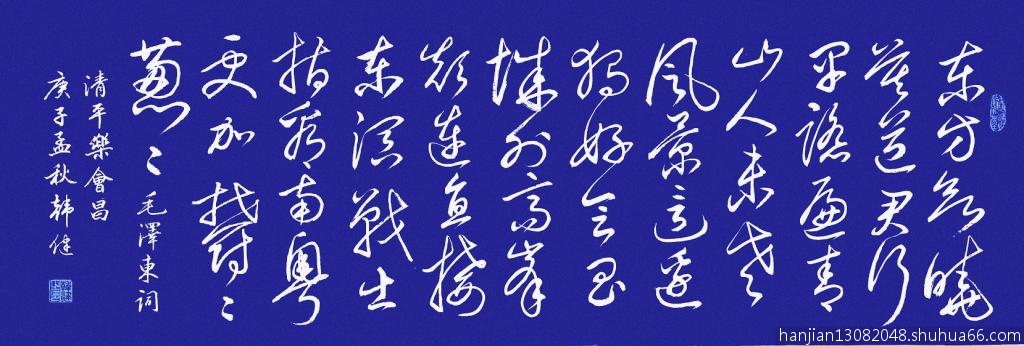 东方欲曉
莫道君行
早踏遍青
山人未老
风景這邊
独好会昌
城外高峰
顛連直接
东溟戰士
指看南粵
更加欝〻
葱〻
毛澤東词
清平樂會昌
庚子孟秋韩健
hanjian13082048.shuhua66.com